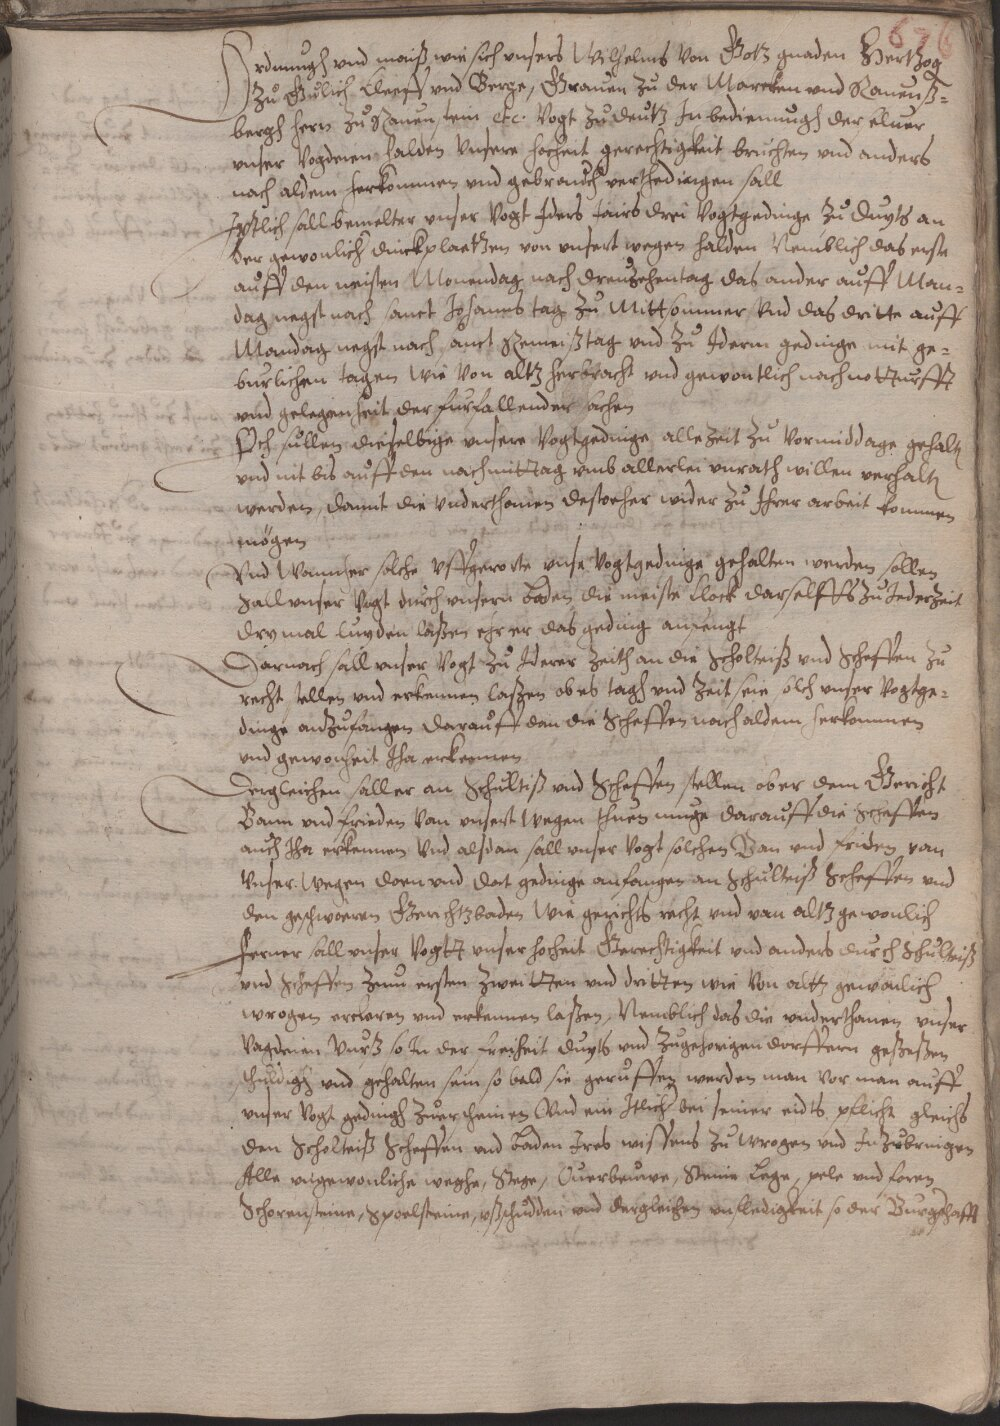 676
Ordnungh vnd maiß wie sich vnsers Wilhelms Von Gotz gnaden Hertzog
Zu Gulich Cleeff vnd Berge, Grauen zu der Marcken vnd Rauenß=
bergh hern zu Rauenstein etc. Vogt Zu deutz In bedienungh der eluer
vnser Vogdeien halden Vnsere hocheit gerechtigkeit bruchten vnd anders
nach aldem herkommen vnd gebrauch verthedingen sall
Irstlich sall bemelter vnser Vogt Iders Jairs drei Vogtgedinge zu Duyts an
der gewonlich dinckplaetzen von vnsert wegen halden Nemblich das erste
auff den neisten Monendag nach dreutzehentag das ander auff Man=
dag negst nach sanct Johannes tag zu Mittsommer Vnd das dritte auff
Mandag negst nach sanct Remeißtag vnd zu Iderm gedinge mit ge=
burlichen tagen Wie von altz herbracht vnd gewontlich nach notturfft
vnd gelegenheit der furfallender sachen
Och sullen dieselbige vnsere Vogtgedinge alle Zeit zu Vormiddage gehalt
vnd nit bis auff den nachmittag vmb allerlei vnrath willen verhalt
werden, damit die Vnderthonen desto eher wider zu Ihrer arbeit kommen
mögen
Vnd Wannher solche vffgerorte vnse Vogtgedinge gehalten werden sollen
sall vnser Vogt durch vnsern boden die meiste Clock darselffs zu Iederzeit
drymal luyden laßen ehr er das geding anfengt
Darnach sall vnser Vogt zu Iderer Zeith an die Scholteiß vnd Scheffen zu
recht stellen vnd erkennen laßen ob es tagh vnd Zeit seie solch vnser Vogtge=
dinge anzufangen darauff dan die Scheffen nach aldem herkommen
vnd gewonheit Iha erkennen
Dergleichen sall er an Schultiß vnd Scheffen stellen ob er dem Gericht
Bann vnd frieden Van vnsert wegen thuen muge darauff die Scheffen
auch Iha erkennen Vnd alsdan sall vnser Vogt solchen Ban vnd friden van
Vnser wegen doen vnd dat gedinge anfangen an Schulteiß Scheffen vnd
den geschworen Gerichtzboden Wie gerichts recht vnd van altz gewonlich
Ferner sall vnser Vogtt vnser hocheit Gerechtigkeit vnd anders durch Schulteiß
vnd Scheffen zum ersten zweitten vnd dritten wie Von altz gewonlich
wrogen ercleren vnd erkennen laßen, Nemblich das die vnderthanen vnser
Vagdeien Vurß so In der freiheit duyts vnd Zugehorigen dorffern geseßen
schuldigh vnd gehalten sein so bald sie geruffen werden man vor man auff
vnser Vogt gedingh zuerscheinen Vnd ein Itlich bei seiner eidts pflicht gleichs
den Scholteiß Scheffen vnd boden Ires wissens zu wrogen vnd Inzubringen
Alle vngewonliche weghe, Stege, Ouerbeuwe, Steine lege, pele vnd foren
Schorensteine, Spoelsteine, vßschudden vnd dergleichen vnsledigkeit so der Burgschafft